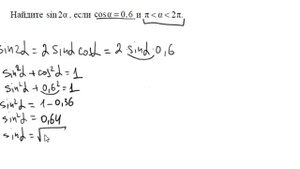 Найдите sin2α, если cosα = 0,6 и π < α < 2π.
sin2α = 2 sinα cosα = 2 sinα · 0,6
sin²α + cos²α = 1
sin²α + 0,6² = 1
sin²α = 1 - 0,36
sin²α = 0,64
sinα = √